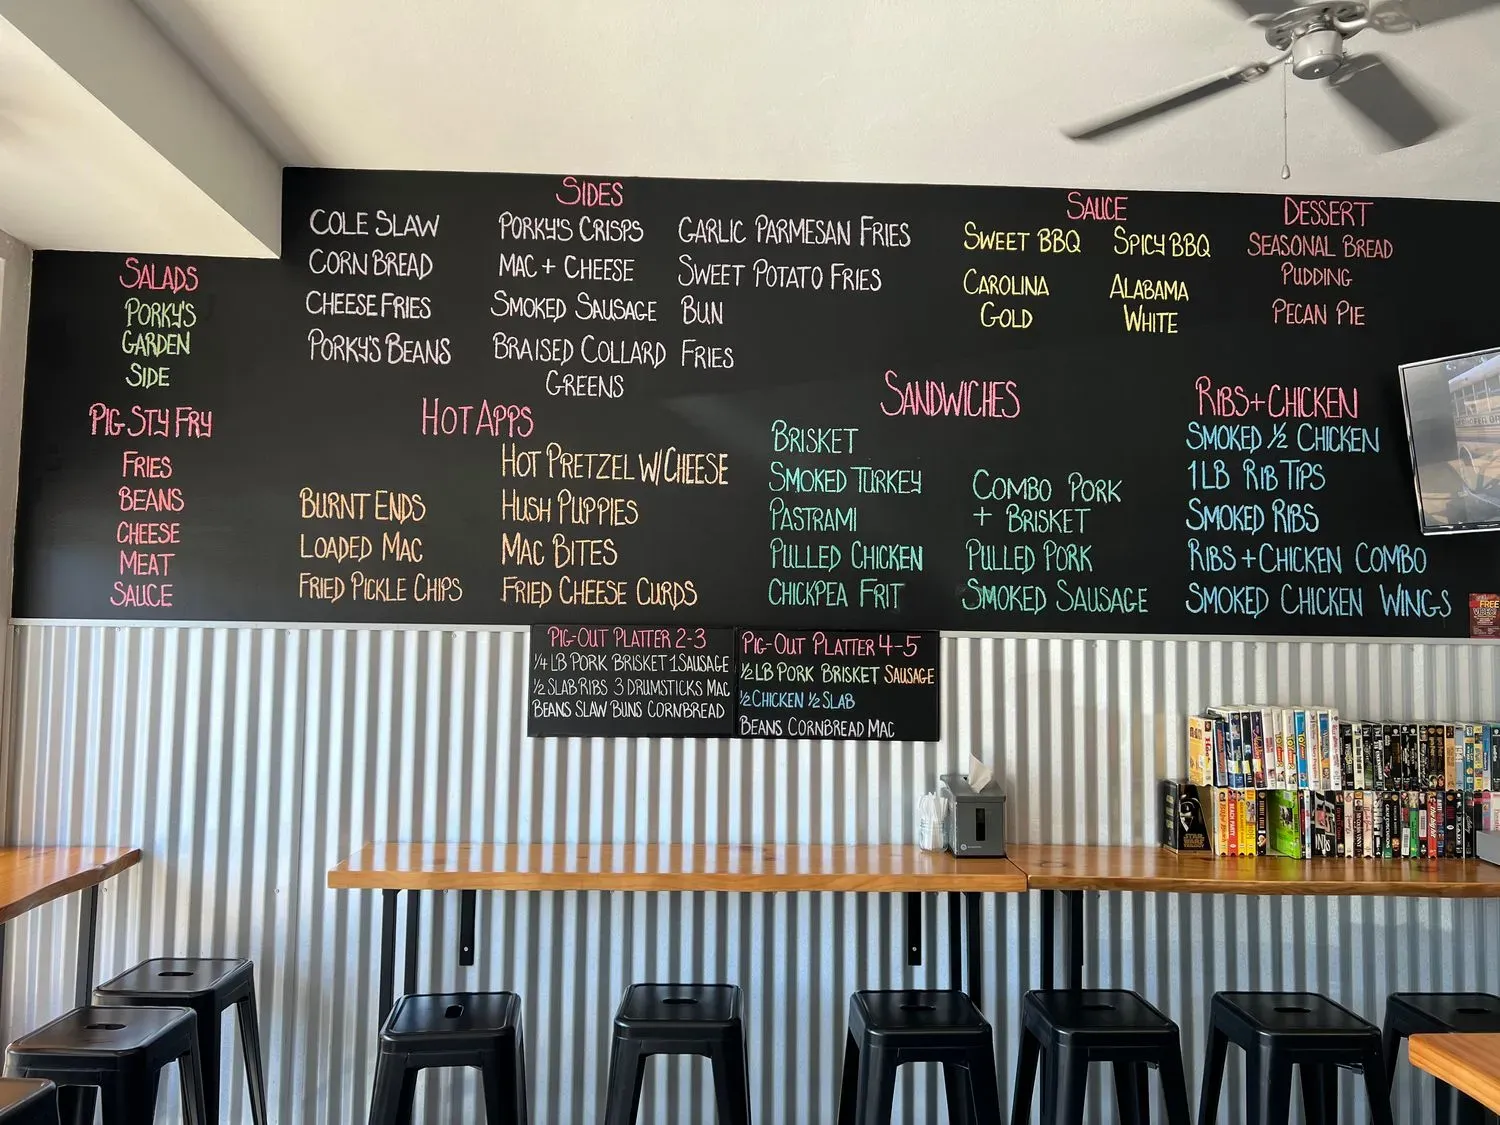 SALADS
PORKY'S
GARDEN
SIDE
PIG STY FRY
FRIES
BEANS
CHEESE
MEAT
SAUCE
SIDES
COLE SLAW
CORN BREAD
CHEESE FRIES
PORKY'S BEANS
PORKY'S CRISPS
MAC + CHEESE
SMOKED SAUSAGE
BRAISED COLLARD
GREENS
GARLIC PARMESAN FRIES
SWEET POTATO FRIES
BUN
FRIES
HOT APPS
BURNT ENDS
LOADED MAC
FRIED PICKLE CHIPS
HOT PRETZEL W/ CHEESE
HUSH PUPPIES
MAC BITES
FRIED CHEESE CURDS
SAUCE
SWEET BBQ
CAROLINA
GOLD
SPICY BBQ
ALABAMA
WHITE
DESSERT
SEASONAL BREAD
PUDDING
PECAN PIE
SANDWICHES
BRISKET
SMOKED TURKEY
PASTRAMI
PULLED CHICKEN
CHICKPEA FRIT
COMBO PORK
+ BRISKET
PULLED PORK
SMOKED SAUSAGE
RIBS+CHICKEN
SMOKED 1/2 CHICKEN
1LB RIB TIPS
SMOKED RIBS
RIBS+CHICKEN COMBO
SMOKED CHICKEN WINGS
PIG-OUT PLATTER 2-3
1/4 LB PORK BRISKET 1 SAUSAGE
1/2 SLAB RIBS 3 DRUMSTICKS MAC
BEANS SLAW BUNS CORNBREAD
PIG-OUT PLATTER 4-5
1/2 LB PORK BRISKET SAUSAGE
1/2 CHICKEN 1/2 SLAB
BEANS CORNBREAD MAC
FREE
STAR
WARS